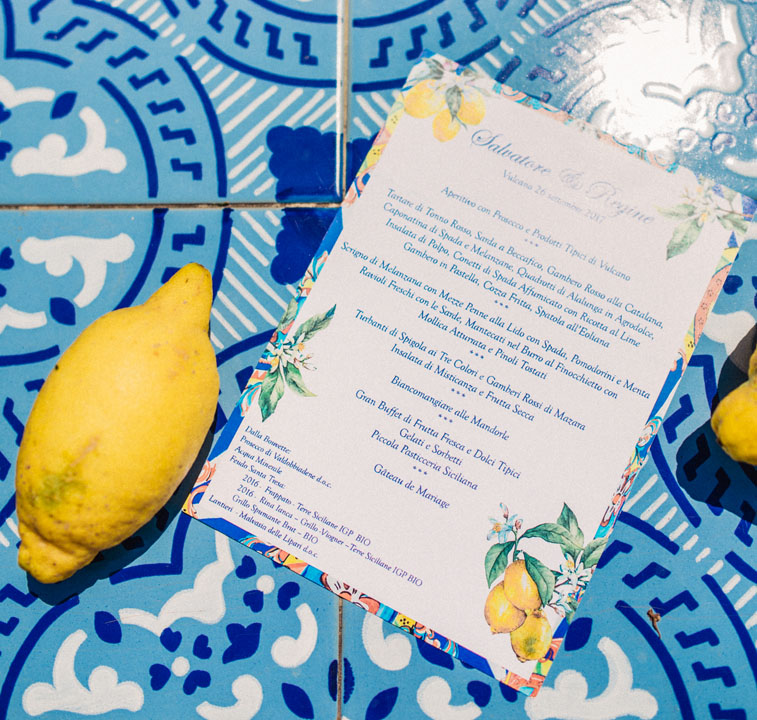 Salvatore & Regine
Vulcano 26 settembre 2017
Aperitivo con Prosecco e Prodotti Tipici di Vulcano
***
Tartare di Tonno Rosso, Sarda a Beccafico, Gambero Rosso alla Catalana,
Caponatina di Spada e Melanzane, Quadrotti di Alalunga in Agrodolce,
Insalata di Polpo, Conetti di Spada Affumicato con Ricotta al Lime
Gambero in Pastella, Cozza Fritta, Spatola all'Eoliana
***
Scrigno di Melanzana con Mezze Penne alla Lido con Spada, Pomodorini e Menta
Ravioli Freschi con le Sarde, Mantecati nel Burro al Finocchietto con
Mollica Atturrata e Pinoli Tostati
***
Turbanti di Spigola ai Tre Colori e Gamberi Rossi di Mazara
Insalata di Misticanza e Frutta Secca
***
Biancomangiare alle Mandorle
***
Gran Buffet di Frutta Fresca e Dolci Tipici
Gelati e Sorbetti
Piccola Pasticceria Siciliana
***
Gâteau de Mariage
Dalla
Prosecco di Valdobbiadene d.o.c.
Acqua Minerale
Feudo Santa Tresa:
2016 . Frappato - Terre Siciliane IGP BIO
2016 . Rina Ianca – Grillo -Viogner - Terre Siciliane IGP BIO
Grillo Spumante Brut – BIO
Lantieri - Malvasia delle Lipari d.o.c.